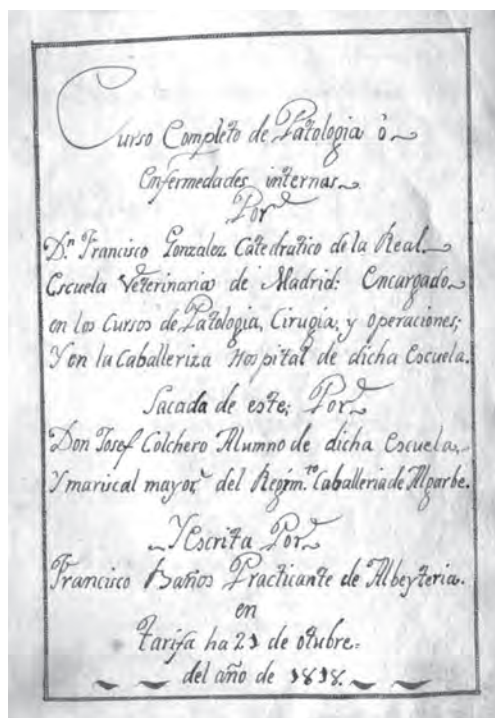 Curso Completo de Patologia ò
Enfermedades internas
Por
Dn. Francisco Gonzalez Catedratico de la Real
Escuela Veterinaria de Madrid: Encargado
en los Cursos de Patologia, Cirugia, y operaciones;
Y en la Caballeriza Hospital de dicha Escuela.
Sacada de este; Por
Don Josef Colchero Alumno de dicha Escuela,
Y mariscal mayor, del Regim.to Caballeria de Algarbe.
Y Escrita Por
Francisco Baños Practicante de Albeyteria.
en
Tarifa ha 21 de otubre.
del año de 1818.